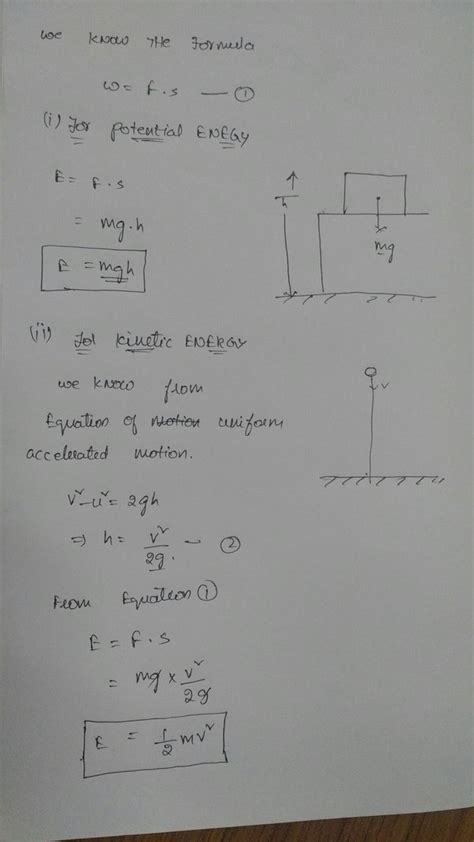 we know the Formula
w = f.s — ①
(i) For potential ENERGY
E = f.s
= mg.h
E = mgh
h
mg
(ii) For kinetic ENERGY
we know from
Equation of motion uniform
accelerated motion.
v² - u² = 2gh
⇒ h = v²/2g. — ②
v
From Equation ①
E = f.s
= mg × v²/2g
E = 1/2 mv²